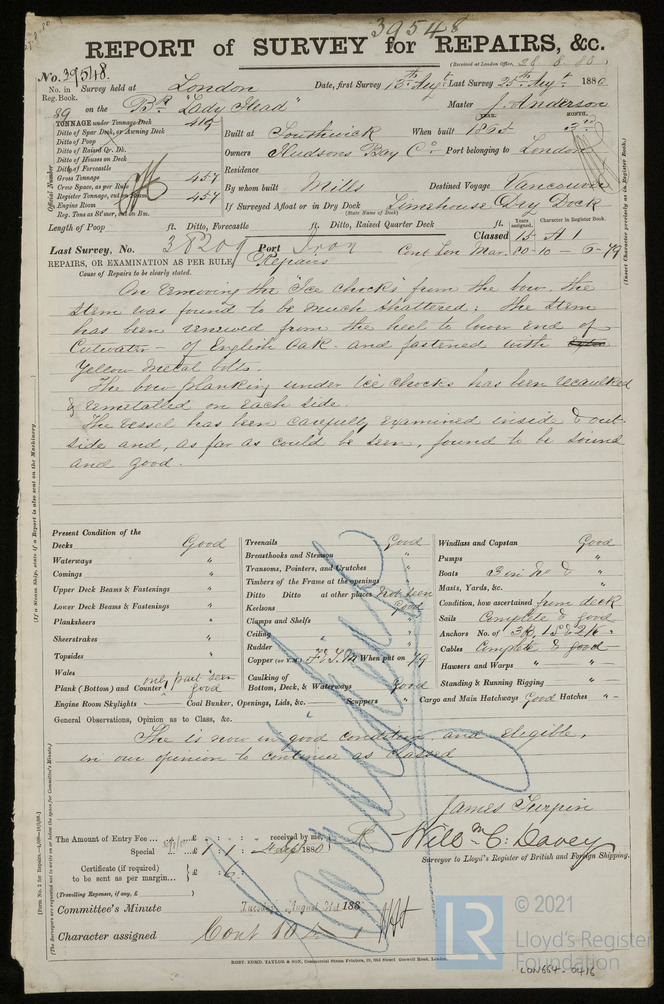 39548
REPORT of SURVEY for REPAIRS, &c.
(Received at London Office, 28.8.80)
No. 39548.
No. in Reg. Book. Survey held at London Date, first Survey 13th Augt Last Survey 25th Augt 1880
39 on the Bk "Lady Head" Master J. Anderson
TONNAGE under Tonnage Deck 419
Ditto of Spar Deck, or Awning Deck
Ditto of Poop
Ditto of Raised Qr. Dk.
Ditto of Houses on Deck
Ditto of Forecastle
Gross Tonnage 457
Crew Space, as per Rule
Register Tonnage, cut on Beam 457
Engine Room
Reg. Tons as St'mer, cut on Bm.
Official Number
YEAR. MONTH.
Built at Southwick When built 1865 3
Owners Hudsons Bay Co Port belonging to London
Residence
By whom built Mills Destined Voyage Vancouver
If Surveyed Afloat or in Dry Dock Limehouse Dry Dock
(State Name of Dock)
(Insert Character precisely as in Register Book.)
Length of Poop ft. Ditto, Forecastle ft. Ditto, Raised Quarter Deck ft.
Years assigned. Character in Register Book.
Classed 15 A 1
Last Survey, No. 38209 Port Iron Cont Lon Mar. 80-10-6-79
REPAIRS, OR EXAMINATION AS PER RULE, Repairs
Cause of Repairs to be clearly stated.
On removing the "Ice chocks" from the bow, the
Stem was found to be much shattered: the Stem
has been renewed from the heel to lower end of
Cutwater - of English Oak and fastened with
Yellow Metal bolts.
The bow planking under Ice chocks has been recaulked
& remetalled on each side.
The vessel has been carefully examined inside & out-
side and, as far as could be seen, found to be sound
and good.
(If a Steam Ship, state if a Report is also sent on the Machinery.)
Present Condition of the
Decks Good
Waterways "
Comings "
Upper Deck Beams & Fastenings "
Lower Deck Beams & Fastenings "
Planksheers "
Sheerstrakes "
Topsides "
Wales "
only part seen
Plank (Bottom) and Counter good
Engine Room Skylights — Coal Bunker, Openings, Lids, &c. — Scuppers " Cargo and Main Hatchways Good Hatches "
Treenails Good
Breasthooks and Stemson "
Transoms, Pointers, and Crutches "
Timbers of the Frame at the openings
Ditto Ditto at other places not seen
Keelsons Good
Clamps and Shelfs "
Ceiling "
Rudder "
Copper (or Y.M.) F.&Y.M When put on 79
Caulking of Bottom, Deck, & Waterways Good
Windlass and Capstan Good
Pumps "
Boats 3 in No &
Masts, Yards, &c. "
Condition, how ascertained from deck
Sails Complete & good
Anchors No. of 3B, 1S & 2K "
Cables Complete & good
Hawsers and Warps " "
Standing & Running Rigging " "
General Observations, Opinion as to Class, &c.
She is now in good condition and eligible,
in our opinion to continue as classed
James Turpin
Willm C. Davey
Surveyor to Lloyd's Register of British and Foreign Shipping.
The Amount of Entry Fee ... £ : : received by me,
Special ... £ 1 : 1 : 4 Sep 1880
Certificate (if required) to be sent as per margin... £ : 6 :
(Travelling Expenses, if any, £ )
Committee's Minute Tuesday August 31st 188
Character assigned Cont 10
(The Surveyors are requested not to write on or below the space for Committee's Minute.)
ROBT. EDMD. TAYLOR & SON, Commercial Steam Printers, 19, Old Street, Goswell Road, London.
LR
© 2021
Lloyd's Register
Foundation
LON664-0416